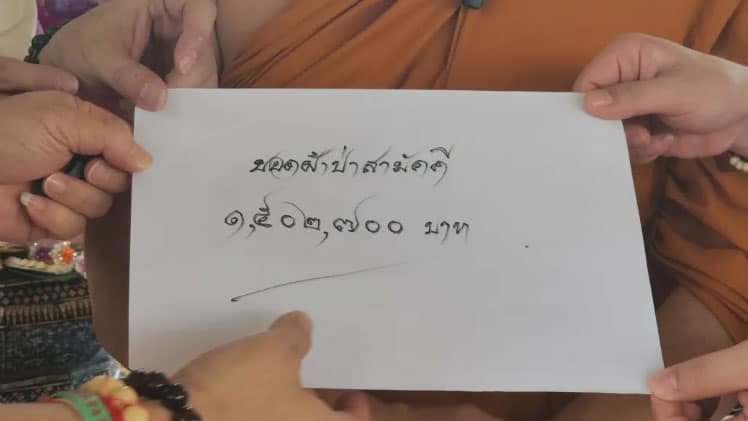 ยอดผ้าป่าสามัคคี
๑,๕๐๒,๗๐๐ บาท